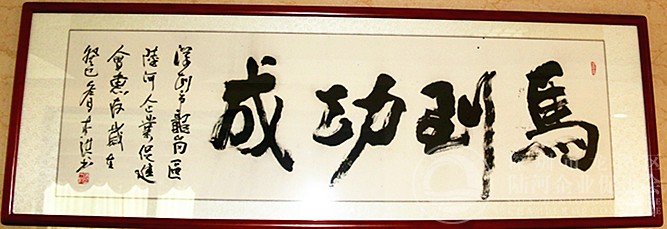 馬到功成
深圳市龍崗區
陸河企業促進
會惠存歲在
癸巳